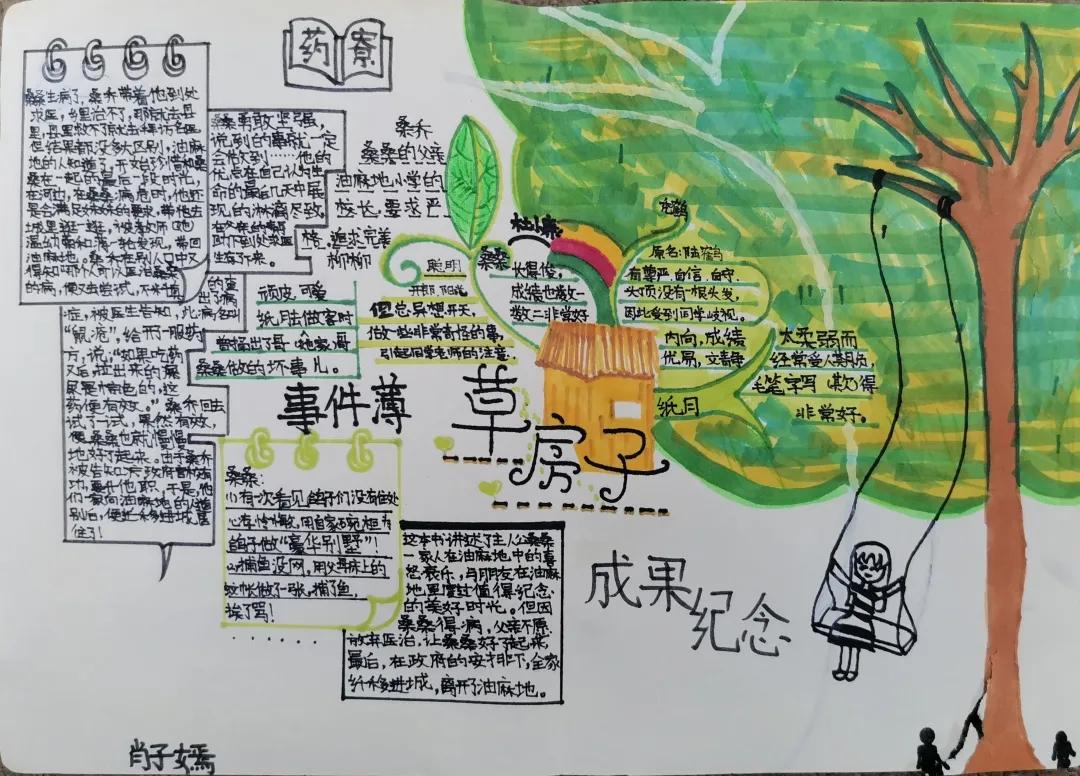 药寮
桑桑生病了,桑乔带着他到处
求医,乡里治不了,那就去县
里,县里救不了就去
但结果都没多大区别。油麻
地的人知道了,开始珍惜和桑
桑在一起的最后一段时光,
在河边,在桑桑病危时,他还
是会满足妹妹的要求,带她去
城里逛一逛,被老师
温幼菊和
油麻地。桑乔在别人口中又
得知哪个人可以医治桑桑
的病,便又去尝试,不来值
的查
出了病
症,被医生告知,此病名叫
“鼠疮”,给开一服药
方,说:“如果吃药
以后,拉出来的尿
尿是棕色的,这
药便有效。”桑乔回去
试了一试,果然有效,
便桑桑也就慢慢
地好了起来。由于桑乔
被告知
别后,便
住了!
桑桑勇敢坚强,
说到的事就一定
会做到……他的
优点在自己认为生
命的最后几天中展
现的淋漓尽致
在终来的
时下到处求医
生存了下来。
桑乔
桑桑的父亲
油麻地小学的
校长,要求严
格、追求完美
柳柳
顽皮、可爱
纸月陆做客时
曾揭出了哥哥
桑桑做的坏事儿。
桑桑
聪明
开朗、阳光
但总异想天开,
做一些非常奇怪的事,
引起同学老师的注意.
杜小康
长得俊。
成绩也数一
数二非常好
秃鹤
原名:陆鹤
有尊严、自信、自守.
头顶没有一根头发,
因此受到同学歧视。
纸月
内向,成绩
优易,文静
太柔弱而
经常受人欺负,
毛笔字写(其欠)得
非常好。
事件薄
草房子
桑桑:
(1)有一次看见鸽子们没有住处
心存怜悯,用自家碗柜为
鸽子做“豪华别墅”!
(2)捕鱼没网,用父母床上的
蚊帐做了一张,捕了鱼,
挨了骂!
······
这本书讲述了主人公桑桑
一家人在油麻地中的喜
怒哀乐,与朋友在油麻
地里度过值得纪念
的美好时光。但因
桑桑得病,父亲不愿
放弃医治,让桑桑好了起来,
最后,在政府的安排下,全家
纤移进城,离开了油麻地。
成果
纪念
肖子嫣